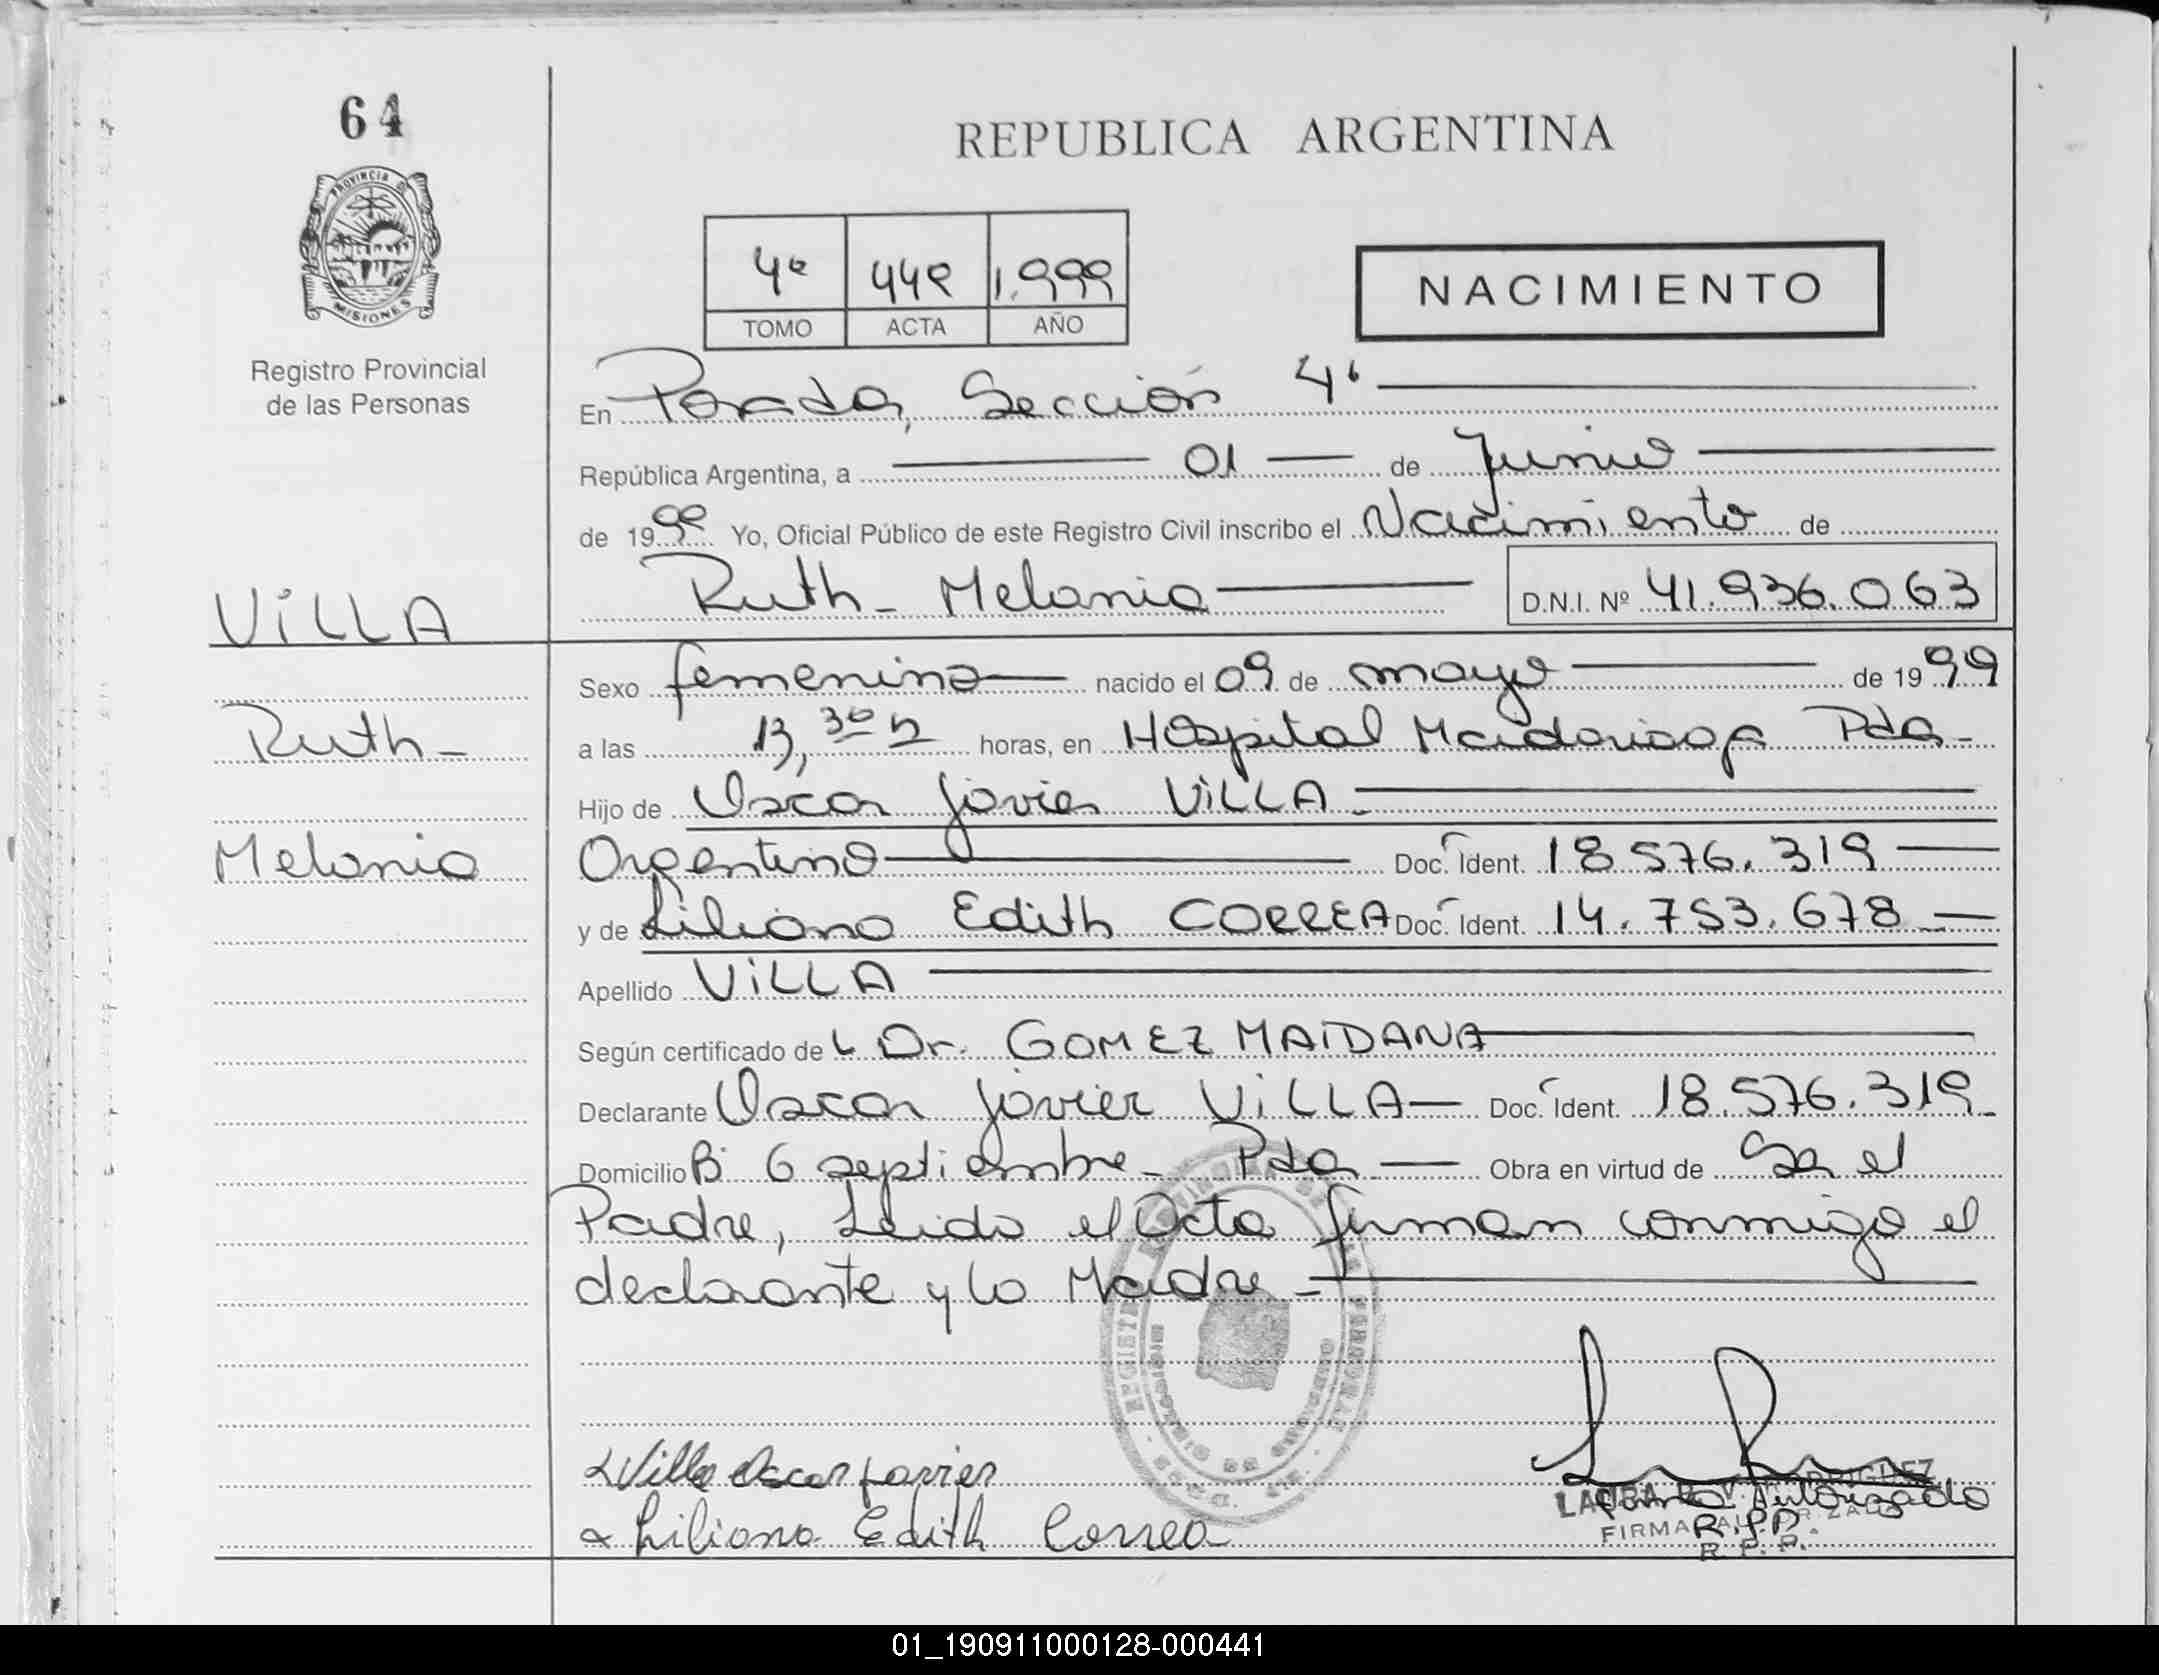 64
REPUBLICA ARGENTINA
PROVINCIA DE
MISIONES
Registro Provincial
de las Personas
4º 449 1.999
TOMO ACTA AÑO
NACIMIENTO
En Posadas, Sección 4º
República Argentina, a 01 de Junio
de 1999 Yo, Oficial Público de este Registro Civil inscribo el Nacimiento de
Ruth Melania D.N.I. Nº 41.936.063
VILLA
Ruth
Melania
Sexo femenino nacido el 09 de mayo de 1999
a las 13,30 h horas, en Hospital Madariaga Pdas
Hijo de Oscar Javier VILLA
Argentino Doc. Ident. 18.576.319
y de Liliana Edith CORREA Doc. Ident. 14.753.678
Apellido VILLA
Según certificado de Dr. GOMEZ MAIDANA
Declarante Oscar Javier VILLA Doc. Ident. 18.576.319
Domicilio Bº 6 septiembre Pdas Obra en virtud de Ser el
Padre, Leida el Acta firman conmigo el
declarante y la Madre
Villa Oscar Javier
Liliana Edith Correa
Firma Autorizado
R.P.P.
FIRMA AUTORIZADO
R. P. P.
01_190911000128-000441